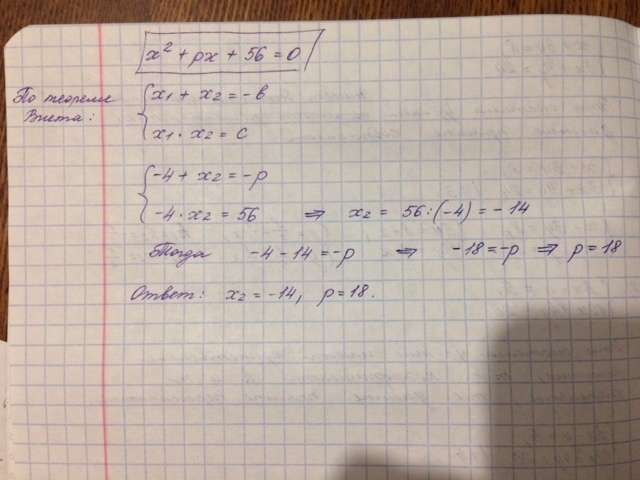 x² + px + 56 = 0
По теореме Виета:
x₁ + x₂ = -в
x₁ · x₂ = с
-4 + x₂ = -p
-4 · x₂ = 56 ⇒ x₂ = 56 : (-4) = -14
Тогда -4 - 14 = -p ⇒ -18 = -p ⇒ p = 18
Ответ: x₂ = -14, p = 18.